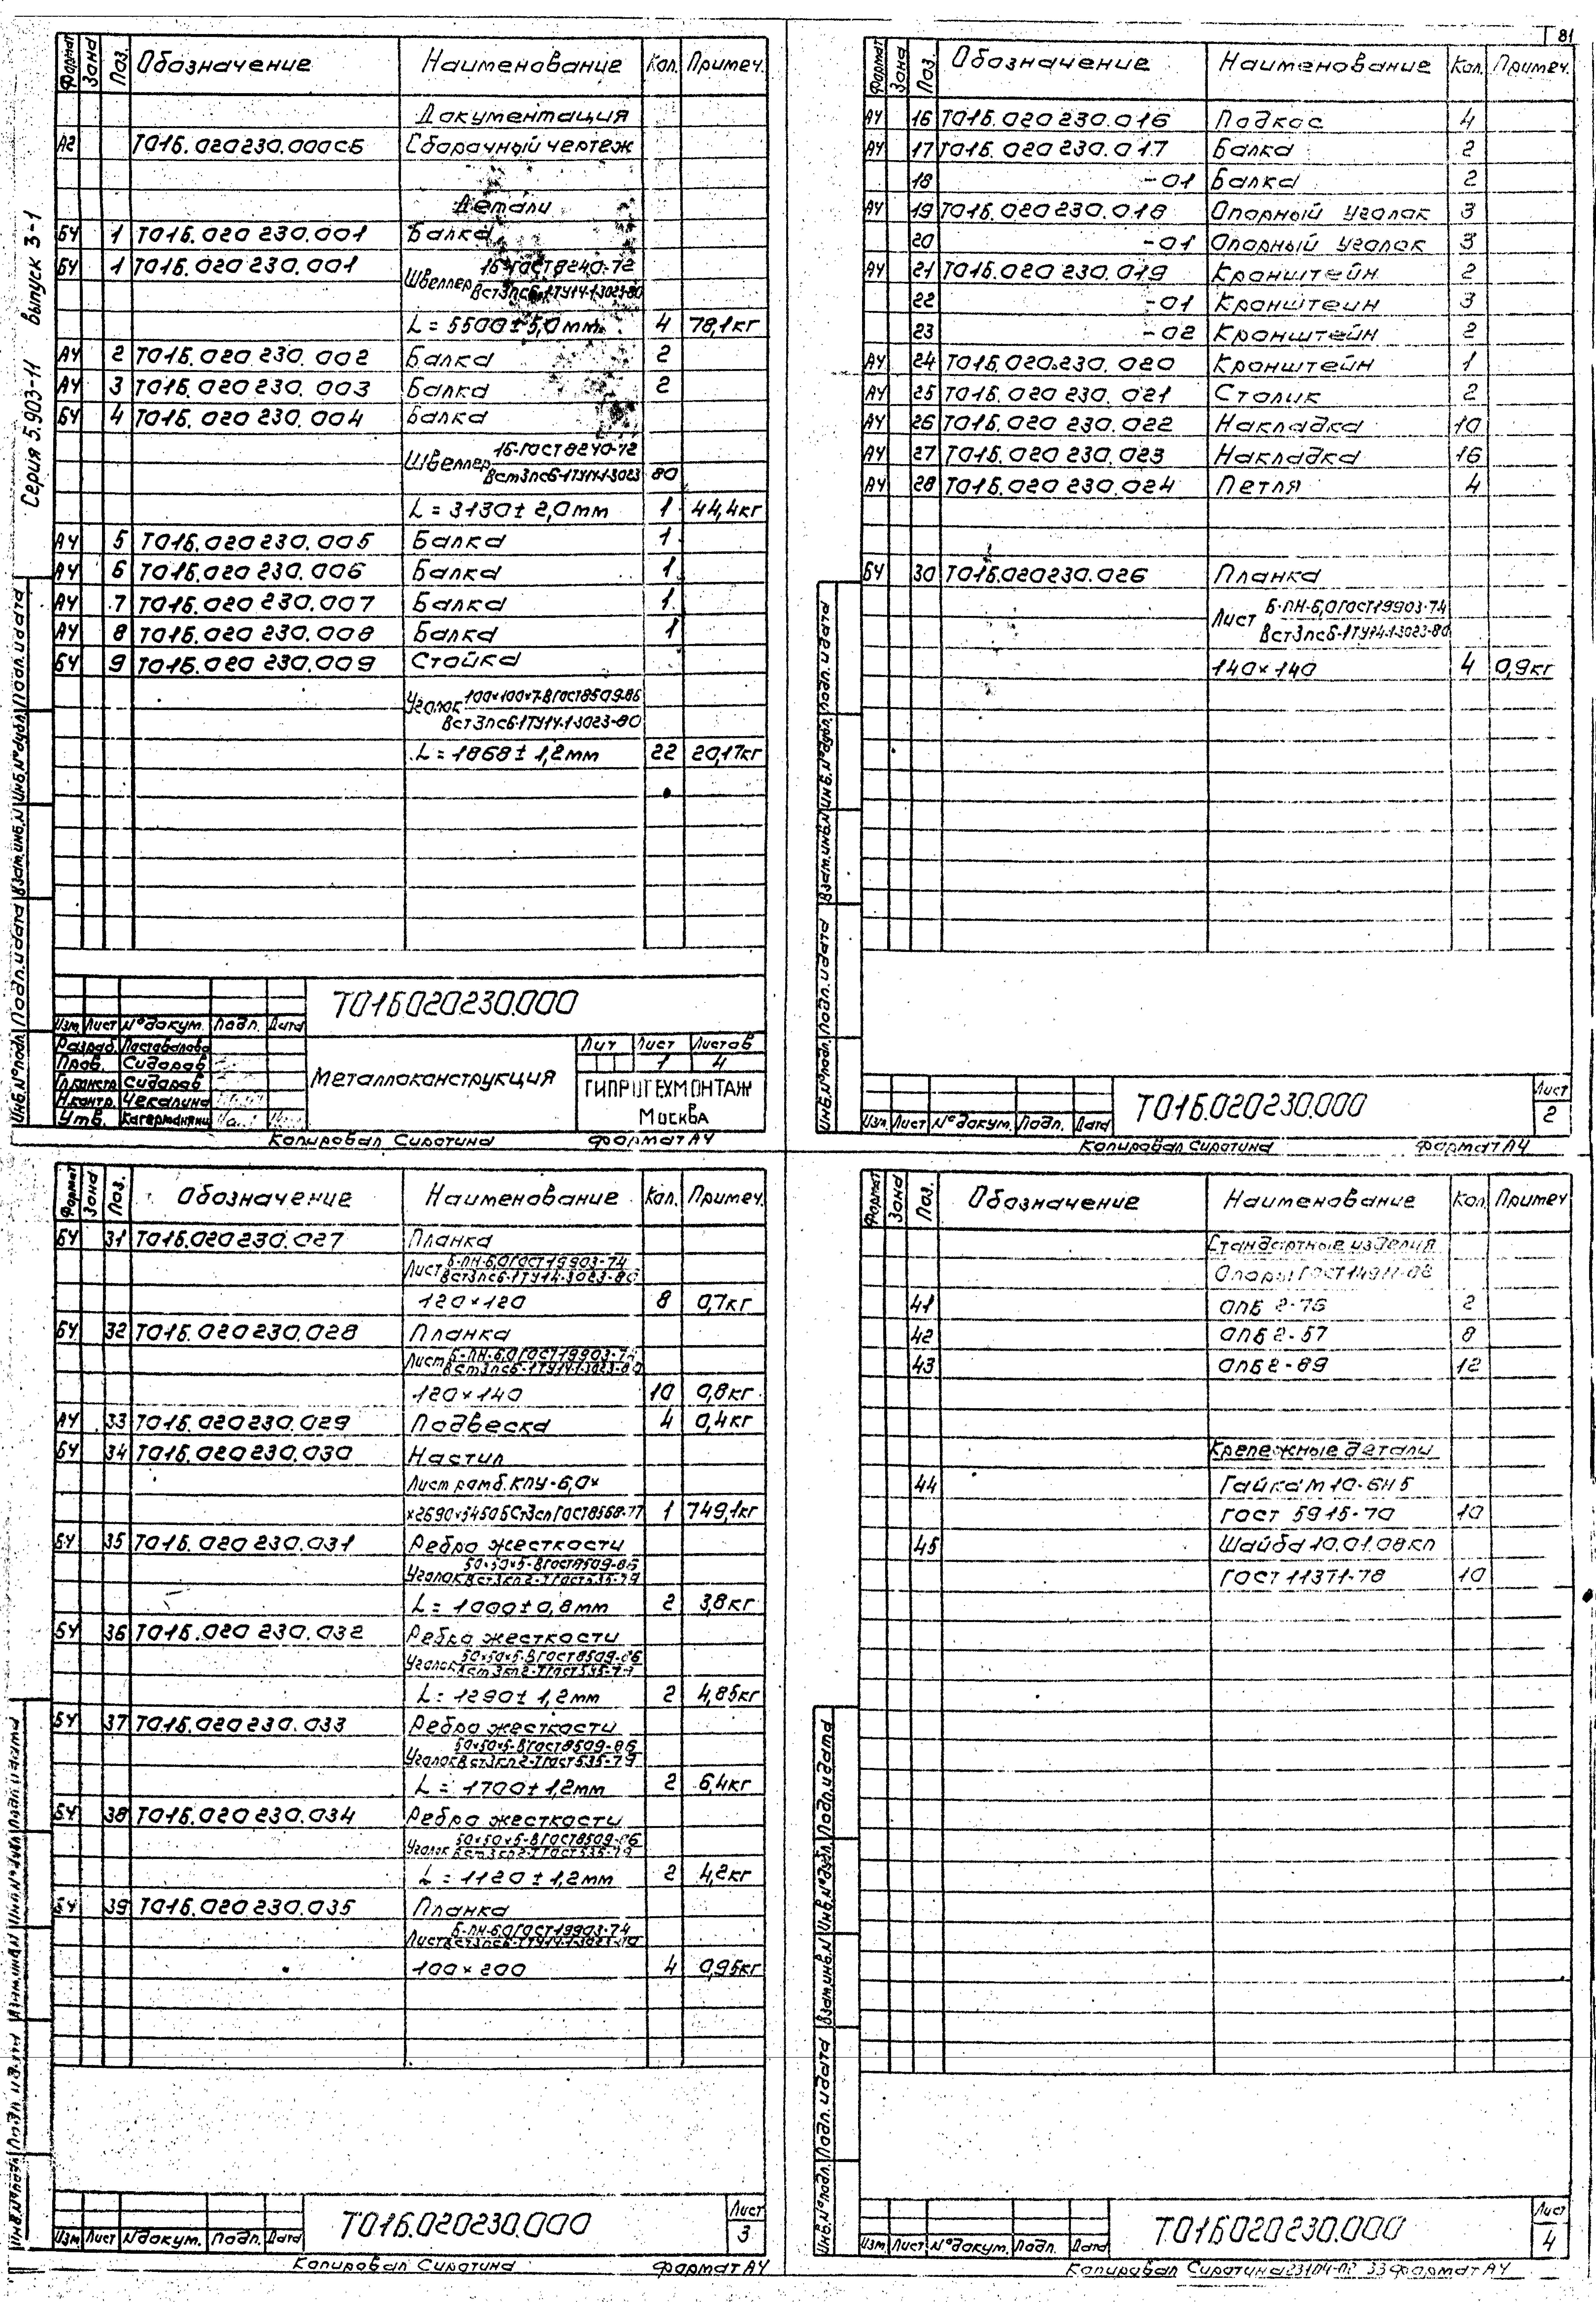 81
Серия 5.903-11 выпуск 3-1
Формат Зона Поз. Обозначение Наименование Кол. Примеч.
Документация
А2 Т01Б.020230.000СБ Сборочный чертеж
Детали
БЧ 1 Т01Б.020 230.001 Балка
БЧ 1 Т01Б.020 230.001 Швеллер 16-ГОСТ8240-72
Вст3пс6-1ТУ14-1-3023-80
L = 5500±5,0мм 4 78,1кг
АЧ 2 Т01Б.020 230.002 Балка 2
АЧ 3 Т01Б.020 230.003 Балка 2
БЧ 4 Т01Б.020 230.004 Балка
Швеллер 16-ГОСТ8240-72
Вст3пс6-1ТУ14-1-3023 80
L = 3130± 2,0мм 1 44,4кг
АЧ 5 Т01Б.020 230.005 Балка 1
АЧ 6 Т01Б.020 230.006 Балка 1
АЧ 7 Т01Б.020 230.007 Балка 1
АЧ 8 Т01Б.020 230.008 Балка 1
БЧ 9 Т01Б.020 230.009 Стойка
Уголок 100×100×7-ВГОСТ8509-86
Вст3пс6-1ТУ14-1-3023-80
L = 1868± 1,2мм 22 20,17кг
Инв.№подл. Подп.и дата Взам.инв.№ Инв.№дубл. Подп.и дата
Т01Б020230.000
Изм. Лист №докум. Подп. Дата
Разраб.
Пров. Сидоров
Гл.констр. Сидоров
Н.контр. Чекалина
Утв.
Металлоконструкция
Лит Лист Листов
1 4
ГИПРОТЕХМОНТАЖ
Москва
Копировал Сиротина Формат А4
Формат Зона Поз. Обозначение Наименование Кол. Примеч.
АЧ 16 Т01Б.020 230.016 Подкос 4
АЧ 17 Т01Б.020 230.017 Балка 2
18 -01 Балка 2
АЧ 19 Т01Б.020 230.018 Опорный уголок 3
20 -01 Опорный уголок 3
АЧ 21 Т01Б.020 230.019 Кронштейн 2
22 -01 Кронштейн 3
23 -02 Кронштейн 2
АЧ 24 Т01Б.020.230.020 Кронштейн 1
АЧ 25 Т01Б.020 230.021 Столик 2
АЧ 26 Т01Б.020 230.022 Накладка 10
АЧ 27 Т01Б.020 230.023 Накладка 16
АЧ 28 Т01Б.020 230.024 Петля 4
БЧ 30 Т01Б.020230.026 Планка
Лист Б-ПН-6,0ГОСТ19903-74
Вст3пс6-1ТУ14-1-3023-80
140×140 4 0,9кг
Инв.№подл. Подп.и дата Взам.инв.№ Инв.№дубл. Подп.и дата
Изм. Лист №докум. Подп. Дата
Т01Б.020230.000
Лист
2
Копировал Сиротина Формат А4
Формат Зона Поз. Обозначение Наименование Кол. Примеч.
БЧ 31 Т01Б.020230.027 Планка
Лист Б-ПН-6,0ГОСТ19903-74
Вст3пс6-1ТУ14-3023-80
120×120 8 0,7кг
БЧ 32 Т01Б.020230.028 Планка
Лист Б-ПН-6,0ГОСТ19903-74
Вст3пс6-1ТУ14-1-3023-80
120×140 10 0,8кг
АЧ 33 Т01Б.020230.029 Подвеска 4 0,4кг
БЧ 34 Т01Б.020230.030 Настил
Лист ромб.КПУ-6,0×
×2690×5450БСт3спГОСТ8568-77 1 749,1кг
БЧ 35 Т01Б.020 230.031 Ребро жесткости
Уголок 50×50×5-ВГОСТ8509-86
Вст3кп2-1ГОСТ535-79
L = 1000±0,8мм 2 3,8кг
БЧ 36 Т01Б.020 230.032 Ребро жесткости
Уголок 50×50×5-ВГОСТ8509-86
Вст3кп2-1ГОСТ535-79
L = 1290± 1,2мм 2 4,85кг
БЧ 37 Т01Б.020230.033 Ребро жесткости
Уголок 50×50×5-ВГОСТ8509-86
Вст3кп2-1ГОСТ535-79
L = 1700± 1,2мм 2 6,4кг
БЧ 38 Т01Б.020 230.034 Ребро жесткости
Уголок 50×50×5-ВГОСТ8509-86
Вст3кп2-1ГОСТ535-79
L = 1120 ± 1,2мм 2 4,2кг
БЧ 39 Т01Б.020230.035 Планка
Лист Б-ПН-6,0ГОСТ19903-74
Вст3пс6-1ТУ14-1-3023-80
100×200 4 0,95кг
Изм. Лист №докум. Подп. Дата
Т01Б.020230.000
Лист
3
Копировал Сиротина Формат А4
Формат Зона Поз. Обозначение Наименование Кол. Примеч
Стандартные изделия
Опоры ГОСТ14911-82
41 ОПБ 2-76 2
42 ОПБ2-57 8
43 ОПБ2-89 12
Крепежные детали
44 Гайка М10-6Н5
ГОСТ 5915-70 10
45 Шайба 10.01.08кп
ГОСТ 11371-78 10
Инв.№подл. Подп.и дата Взам.инв.№ Инв.№дубл. Подп.и дата
Изм. Лист №докум. Подп. Дата
Т01Б020230.000
Лист
4
Копировал Сиротина 23104-02 33 Формат А4